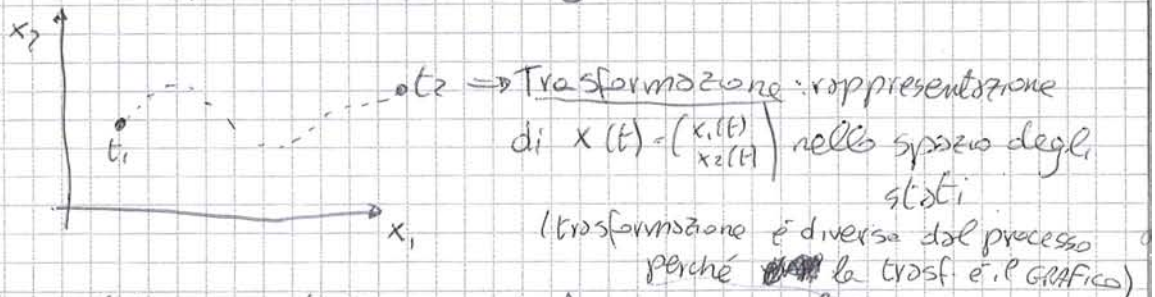 x₂
t₂ ⇒ Trasformazione: rappresentazione
t₁
di x(t) = (x₁(t) x₂(t)) nello spazio degli
stati
x₁
(trasformazione è diversa dal processo
perché la trasf. è il GRAFICO)